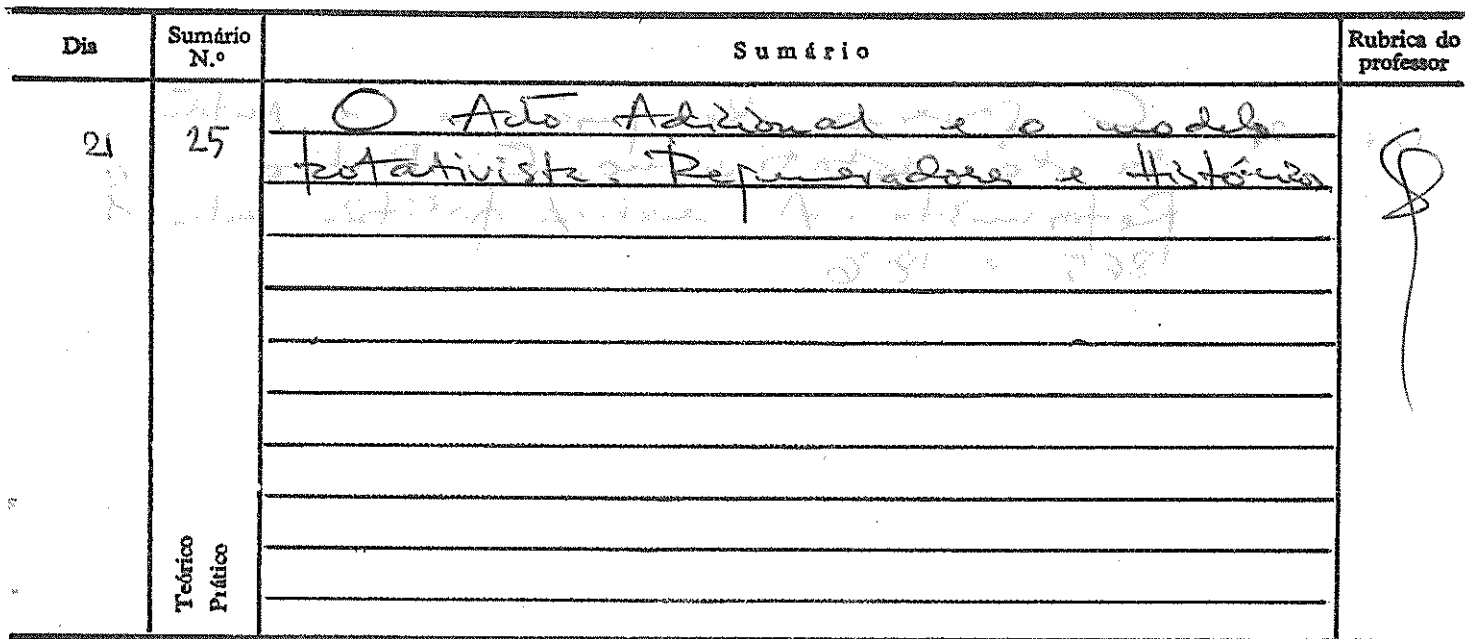 Dia
Sumário N.º
Sumário
Rubrica do professor
21
25
O Acto Adicional e o modelo
rotativista. Regeneradores e Históricos
Teórico
Prático